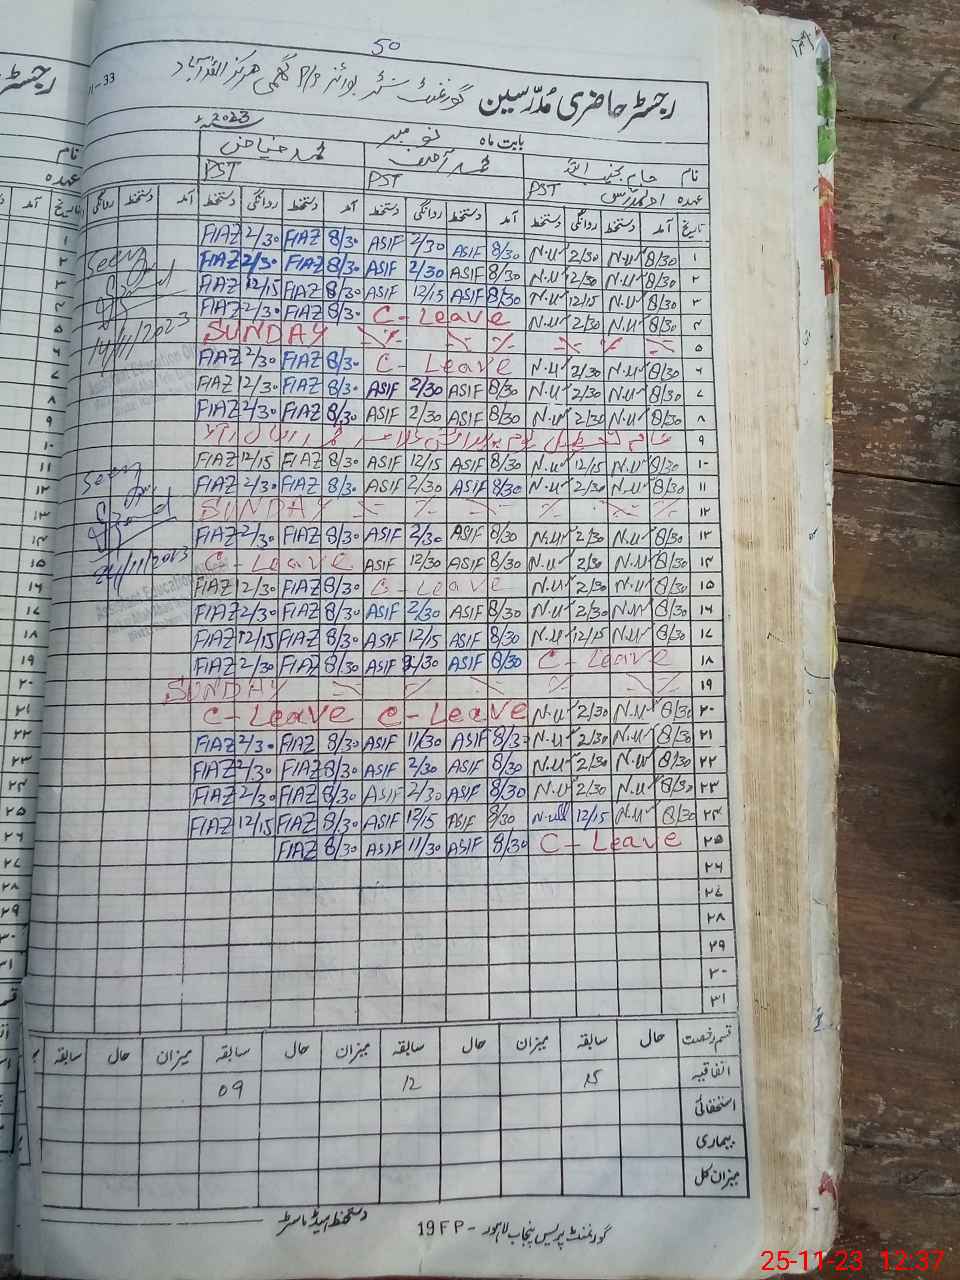 50
رجسٹر حاضری مُدرّسین
2023
بابت ماہ نومبر
نام محمد آصف محمد فیاض
عہدہ PST PST PST
تاریخ آمد دستخط روانگی دستخط آمد دستخط روانگی دستخط آمد دستخط روانگی دستخط آمد دستخط روانگی
۱ 8/30 N.U 2/30 N.U 8/30 ASIF 2/30 ASIF 8/30 FIAZ 2/30 FIAZ
۲ 8/30 N.U 2/30 N.U 8/30 ASIF 2/30 ASIF 8/30 FIAZ 2/30 FIAZ Seen
۳ 8/30 N.U 12/15 N.U 8/30 ASIF 12/15 ASIF 8/30 FIAZ 12/15 FIAZ
۴ 8/30 N.U 2/30 N.U C-Leave 8/30 FIAZ 2/30 FIAZ
۵ SUNDAY 14/11/2023
۶ 8/30 N.U 2/30 N.U C-Leave 8/30 FIAZ 2/30 FIAZ
۷ 8/30 N.U 2/30 N.U 8/30 ASIF 2/30 ASIF 8/30 FIAZ 2/30 FIAZ
۸ 8/30 N.U 2/30 N.U 8/30 ASIF 2/30 ASIF 8/30 FIAZ 2/30 FIAZ
۹ عام تعطیل یوم پیدائش علامہ محمد اقبال
۱۰ 8/30 N.U 12/15 N.U 8/30 ASIF 12/15 ASIF 8/30 FIAZ 12/15 FIAZ
۱۱ 8/30 N.U 2/30 N.U 8/30 ASIF 2/30 ASIF 8/30 FIAZ 2/30 FIAZ Seen
۱۲ SUNDAY
۱۳ 8/30 N.U 2/30 N.U 8/30 ASIF 2/30 ASIF 8/30 FIAZ 2/30 FIAZ
۱۴ 8/30 N.U 2/30 N.U 8/30 ASIF 12/30 ASIF C-Leave 24/11/2023
۱۵ 8/30 N.U 2/30 N.U C-Leave 8/30 FIAZ 2/30 FIAZ
۱۶ 8/30 N.U 2/30 N.U 8/30 ASIF 2/30 ASIF 8/30 FIAZ 2/30 FIAZ
۱۷ 8/30 N.U 12/15 N.U 8/30 ASIF 12/15 ASIF 8/30 FIAZ 12/15 FIAZ
۱۸ C-Leave 8/30 ASIF 2/30 ASIF 8/30 FIAZ 2/30 FIAZ
۱۹ SUNDAY
۲۰ 8/30 N.U 2/30 N.U C-Leave C-Leave
۲۱ 8/30 N.U 2/30 N.U 8/30 ASIF 11/30 ASIF 8/30 FIAZ 2/30 FIAZ
۲۲ 8/30 N.U 2/30 N.U 8/30 ASIF 2/30 ASIF 8/30 FIAZ 2/30 FIAZ
۲۳ 8/30 N.U 2/30 N.U 8/30 ASIF 2/30 ASIF 8/30 FIAZ 2/30 FIAZ
۲۴ 8/30 N.U 12/15 N.U 8/30 ASIF 12/15 ASIF 8/30 FIAZ 12/15 FIAZ
۲۵ C-Leave 8/30 ASIF 11/30 ASIF 8/30 FIAZ
۲۶
۲۷
۲۸
۲۹
۳۰
۳۱
قسم رخصت حال سابقہ میزان حال سابقہ میزان حال سابقہ میزان حال سابقہ
اتفاقیہ 15 12 09
استحقاقی
بیماری
میزان کل
دستخط ہیڈ ماسٹر
گورنمنٹ پریس پنجاب لاہور - 19FP
25-11-23 12:37